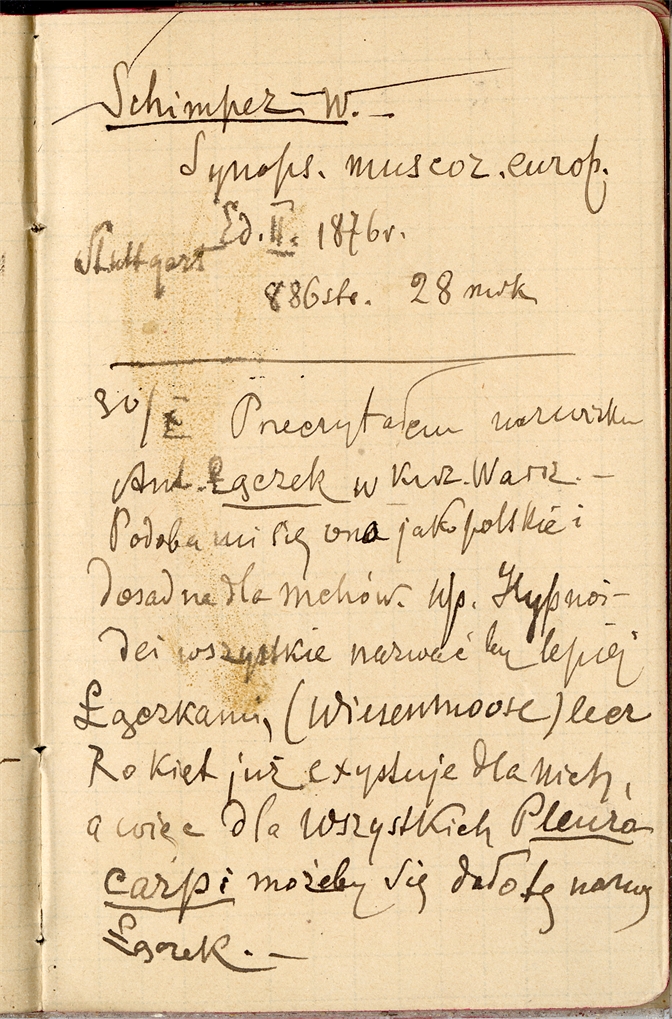 Schimper W. —
Synops. muscor. europ.
Ed. II. 1876 r.
Stuttgart
886 str. 28 mrk
30/X Przeczytałem nazwisko
Ant. Łączek w Kur. Warsz. —
Podoba mi się ona jako polskie i
dosadne dla mchów. np. Hypnoi-
dei wszystkie nazwać by lepiej
Łączkami, (Wiesenmoose) lecz
Rokiet już exystuje dla nich,
a więc dla wszystkich Pleuro
carpi możeby się dało tę nazwę
Łączek. —